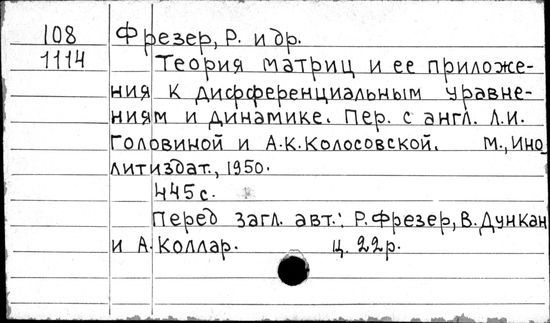 108 Фрезер, Р. и др.
1114 Теория матриц и ее приложе-
ния к дифференциальным уравне-
ниям и динамике. Пер. с англ. Л.И.
Головиной и А.К.Колосовской. М., Ино_
литиздат., 1950.
445 с.
Перед загл. авт.: Р.Фрезер, В.Дункан
и А.Коллар. Ц. 22р.